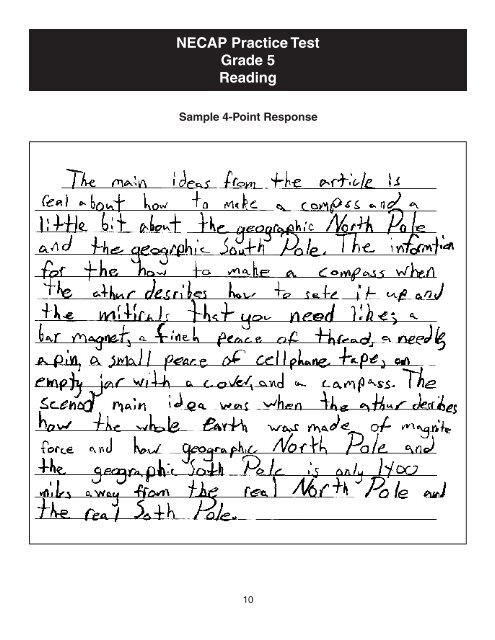 NECAP Practice Test
Grade 5
Reading
Sample 4-Point Response
The main ideas from the article is
real about how to make a compass and a
little bit about the geographic North Pole
and the geogrphic South Pole. The informtion
for the how to make a compass when
the athur desribes how to sete it up and
the mitirals that you need likes a
bar magnet, a finch peace of thread, a needle
a pin, a small peace of cellphane tape, an
empty jar with a cover, and a campass. The
scenod main idea was when the athur deribes
how the whole Earth was made of magnite
force and how geographic North Pole and
the geographic Soth Pole is only 1400
miles away from the real North Pole and
the real Soth Pole.
10